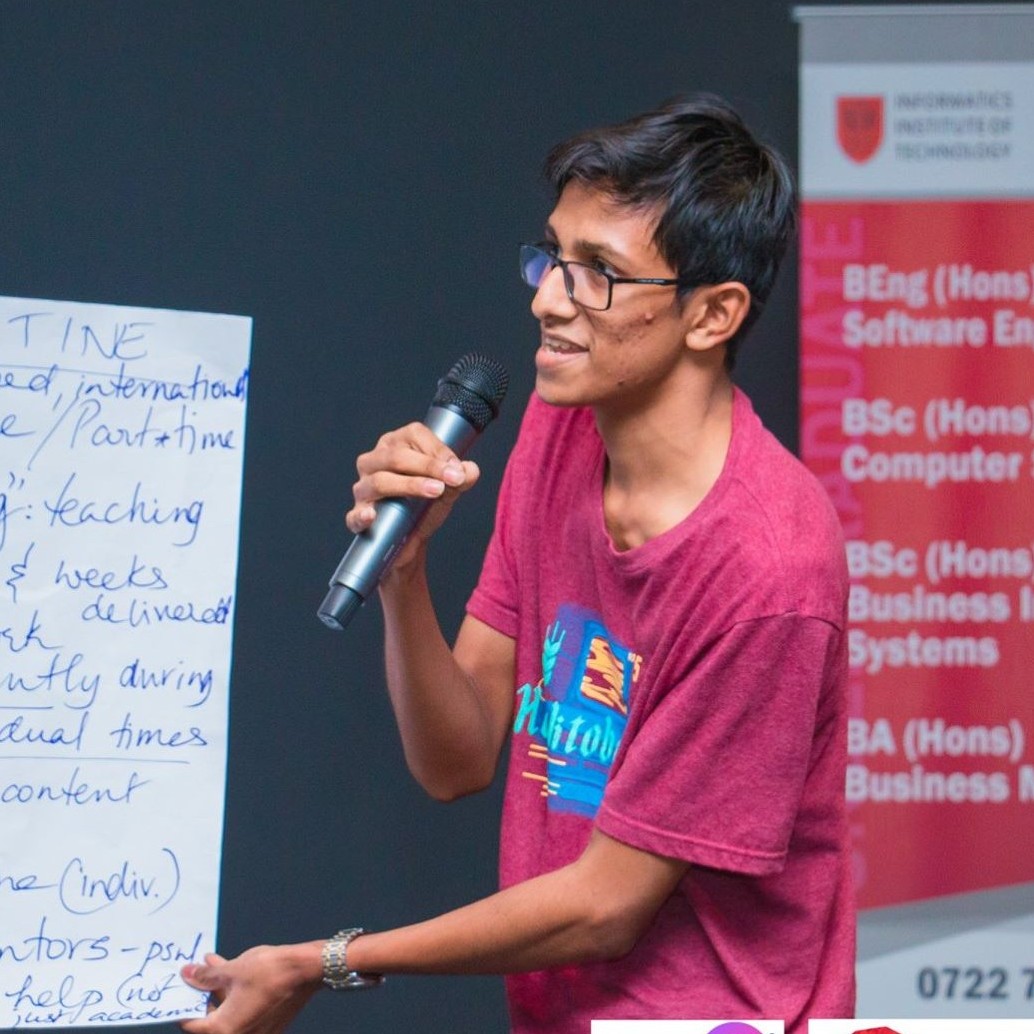 TINE
ed, international
e / Part time
g": teaching
& weeks
delivered
rk
ntly during
dual times
content
ne (indiv.)
ntors -
help (not
just academic
INFORMATICS
INSTITUTE OF
TECHNOLOGY
BEng (Hons)
Software En
BSc (Hons)
Computer
BSc (Hons)
Business
Systems
BA (Hons)
Business
0722 7